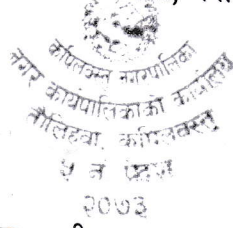 कपिलवस्तु नगरपालिका
नगर कार्यपालिकाको कार्यालय
तौलिहवा, कपिलवस्तु
५ नं प्रदेश
२०७३